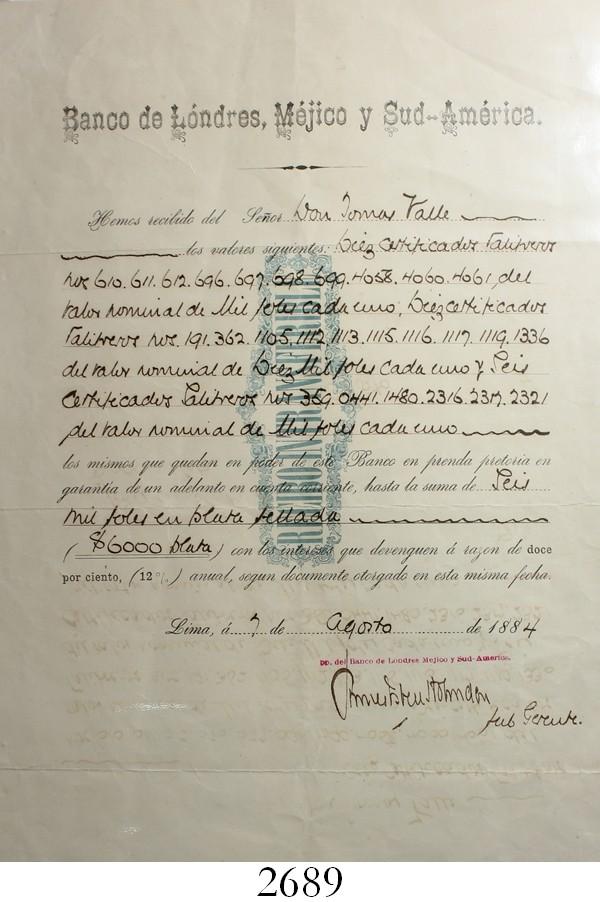 Banco de Lóndres, Méjico y Sud-América.
Hemos recibido del Señor Don Tomas Valle
los valores siguientes: Diez Certificados Salitreros
nos 610. 611. 612. 696. 697. 698. 699. 4058. 4060. 4061, del
valor nominal de Mil soles cada uno, Diez certificados
Salitreros nos. 191. 362. 1105. 1112 1113. 1115. 1116. 1117. 1119. 1336
del valor nominal de Diez Mil soles cada uno y Seis
Certificados Salitreros nos 359. 0441. 1480. 2316. 2317. 2321
del valor nominal de Mil soles cada uno
los mismos que quedan en poder de este Banco en prenda pretoria en
garantia de un adelanto en cuenta corriente, hasta la suma de Seis
mil soles en plata sellada
($6000 plata) con los intereses que devenguen á razon de doce
por ciento, (12%) anual, segun documente otorgado en esta misma fecha.
Lima, á 7 de Agosto de 1884
pp. del Banco de Londres Mejico y Sud-America.
Sub Gerente.
RECIBO INTRANSFERIBLE
2689